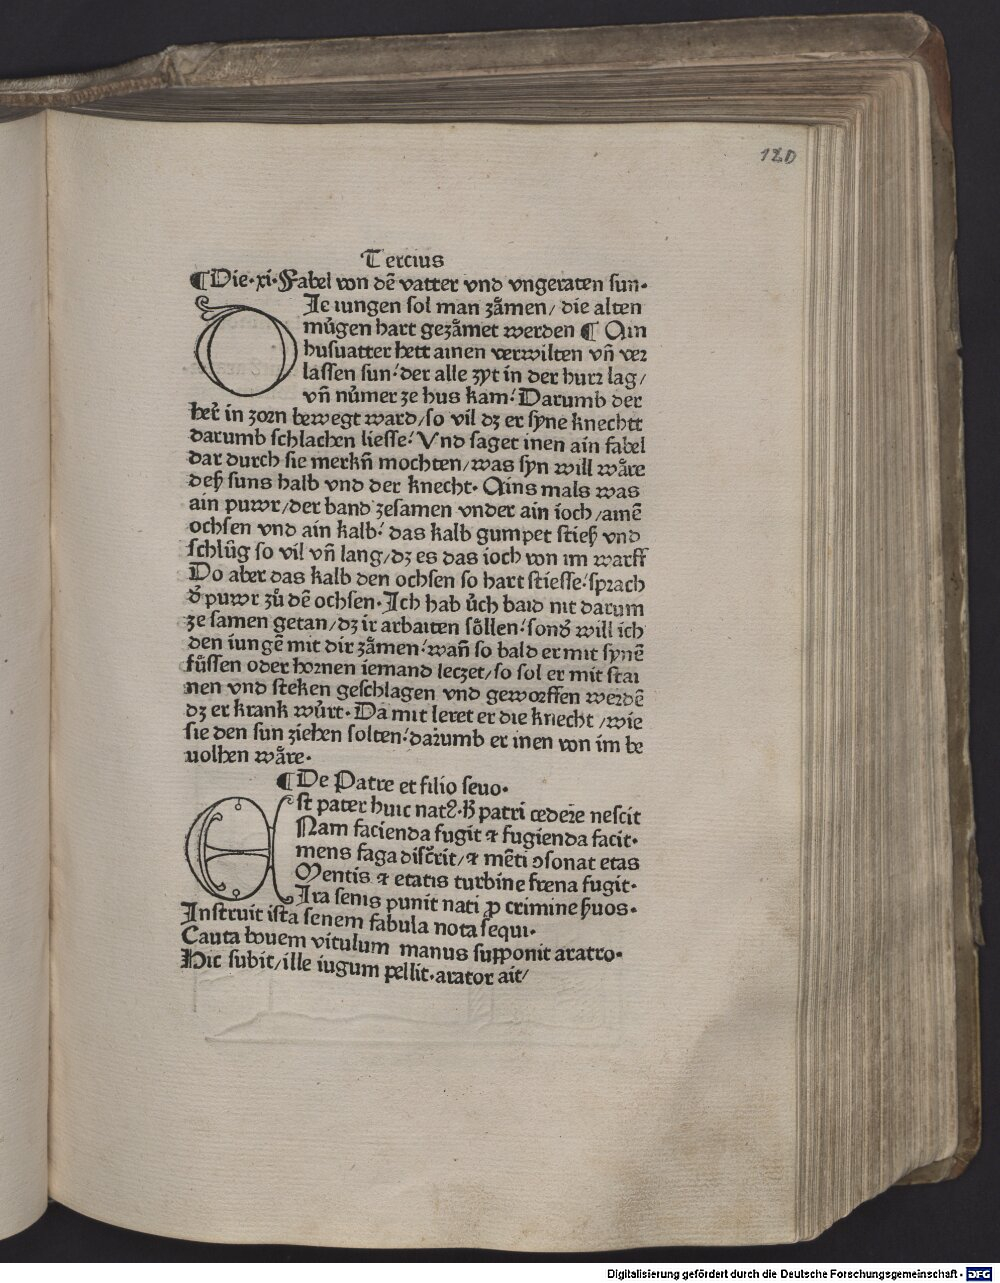 120
Tercius
¶Die·xi·Fabel von dē vatter vnd vngeraten sun·
DIe iungen sol man zåmen/ die alten
mu̇gen hart gezåmet werden ¶ Ain
husuatter hett ainen verwilten vn̄ ver
lassen sun/ der alle zyt in der hurr lag/
vn̄ nu̇mer ze hus kam/ Darumb der
her in zorn bewegt ward/so vil dz er syne knechtt
darumb schlachen liesse/ Vnd saget inen ain fabel
dar durch sie merkn̄ mochten/was syn will wåre
deß suns halb vnd der knecht· Ains mals was
ain puwr/der band zesamen vnder ain ioch/amē
ochsen vnd ain kalb/ das kalb gumpet stieß vnd
schlůg so vil vn̄ lang/dz es das ioch von im warff
Do aber das kalb den ochsen so hart stiesse/sprach
d̄ puwr zů dē ochsen·Ich hab u̇ch baid nit darum
ze samen getan/dz ir arbaiten söllen/sond̄ will ich
den iungē mit dir zåmen/wan̄ so bald er mit synē
fůssen oder hornen iemand leczet/so sol er mit stai
nen vnd steken geschlagen vnd geworffen werdē
dz er krank wu̇rt·Da mit leret er die knecht/wie
sie den sun ziehen solten/darumb er inen von im be
uolhen wåre·
¶De Patre et filio seuo·
ESt pater huic natꝰ·hͦ patri cedere nescit
Nam facienda fugit ⁊ fugienda facit·
mens faga disc̄rit/⁊ mēti ꝯsonat etas
Mentis ⁊ etatis turbine frena fugit·
Ira senis punit nati ꝓ crimine ẜuos·
Instruit ista senem fabula nota sequi·
Cauta bouem vitulum manus supponit aratro·
Hic subit/ille iugum pellit·arator ait/
Digitalisierung gefördert durch die Deutsche Forschungsgemeinschaft - DFG